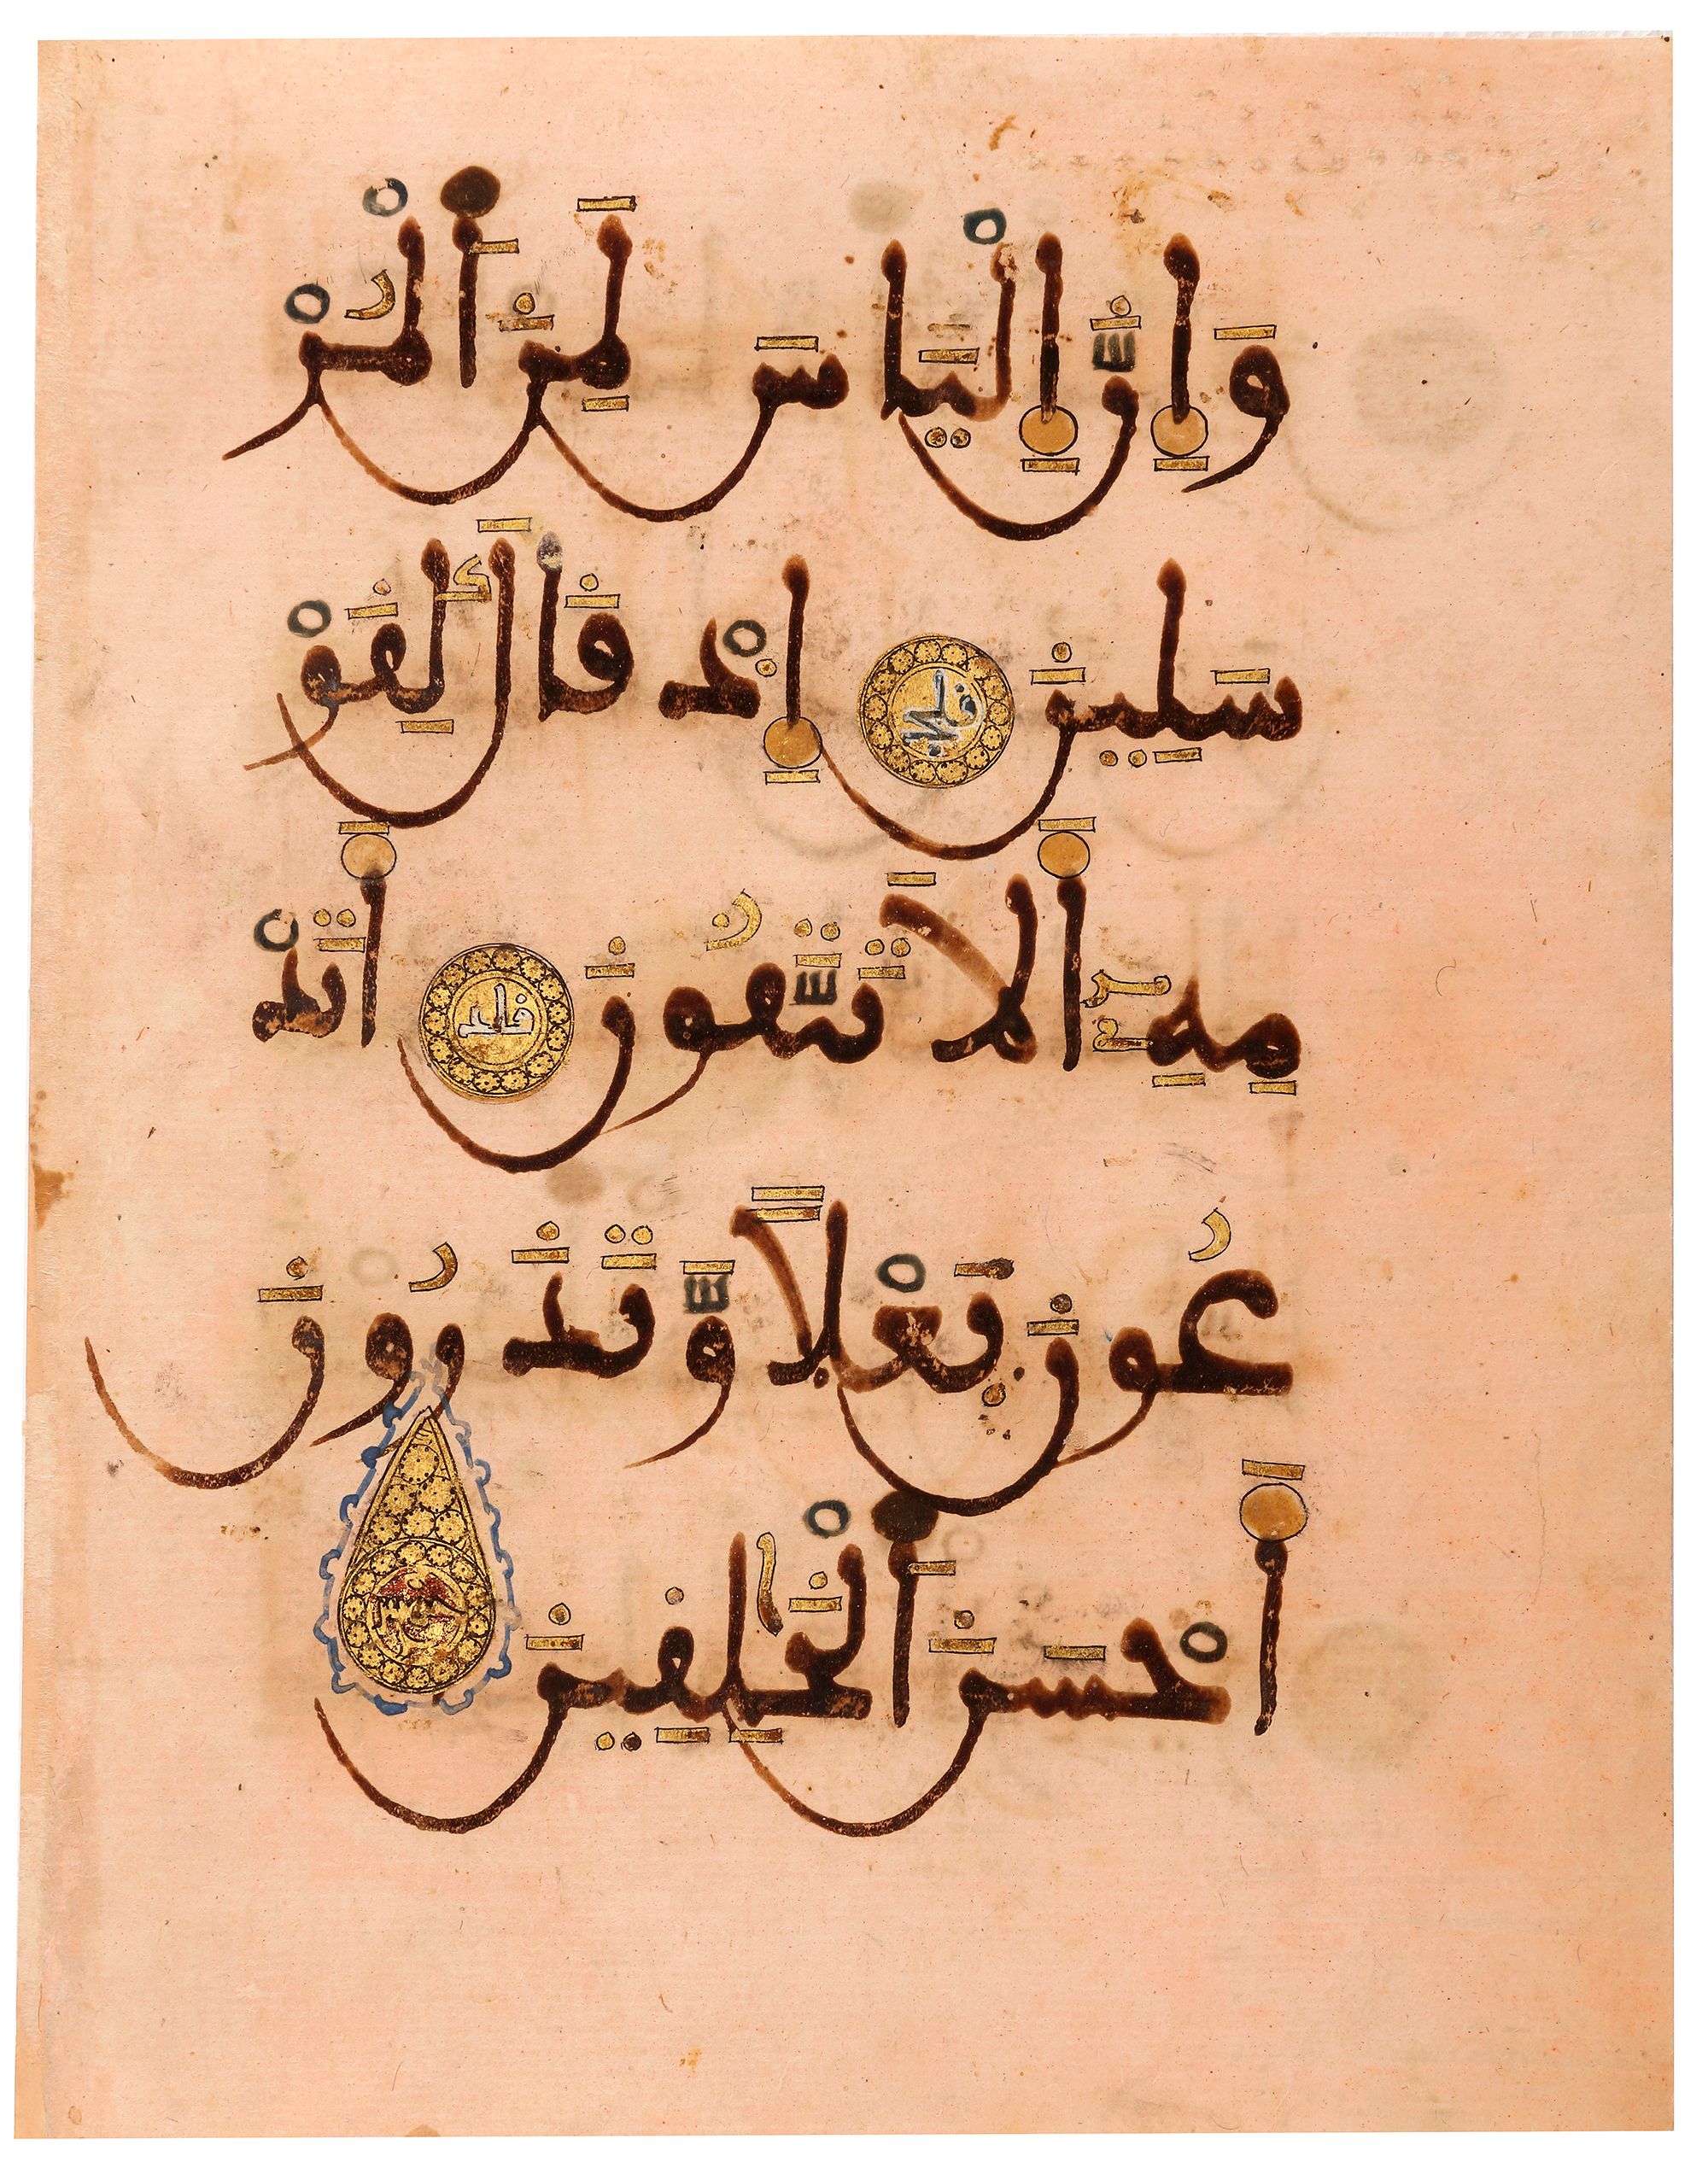 وَإِنَّ إِلْيَاسَ لَمِنَ ٱلْمُرْ
سَلِينَ إِذْ قَالَ لِقَوْ
مِهِۦٓ أَلَا تَتَّقُونَ أَتَدْ
عُونَ بَعْلًا وَّتَذَرُونَ
أَحْسَنَ ٱلْخَٰلِقِينَ